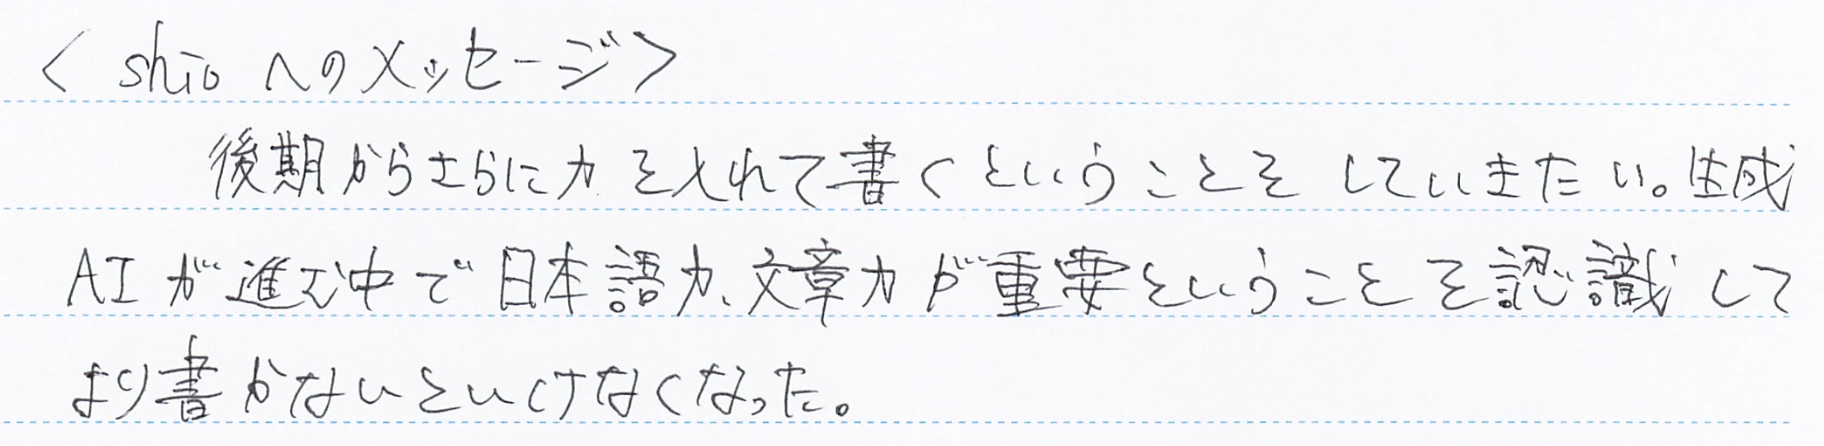 ＜shioへのメッセージ＞
後期からさらに力を入れて書くということをしていきたい。生成
AIが進む中で日本語力、文章力が重要ということを認識して
より書かないといけなくなった。